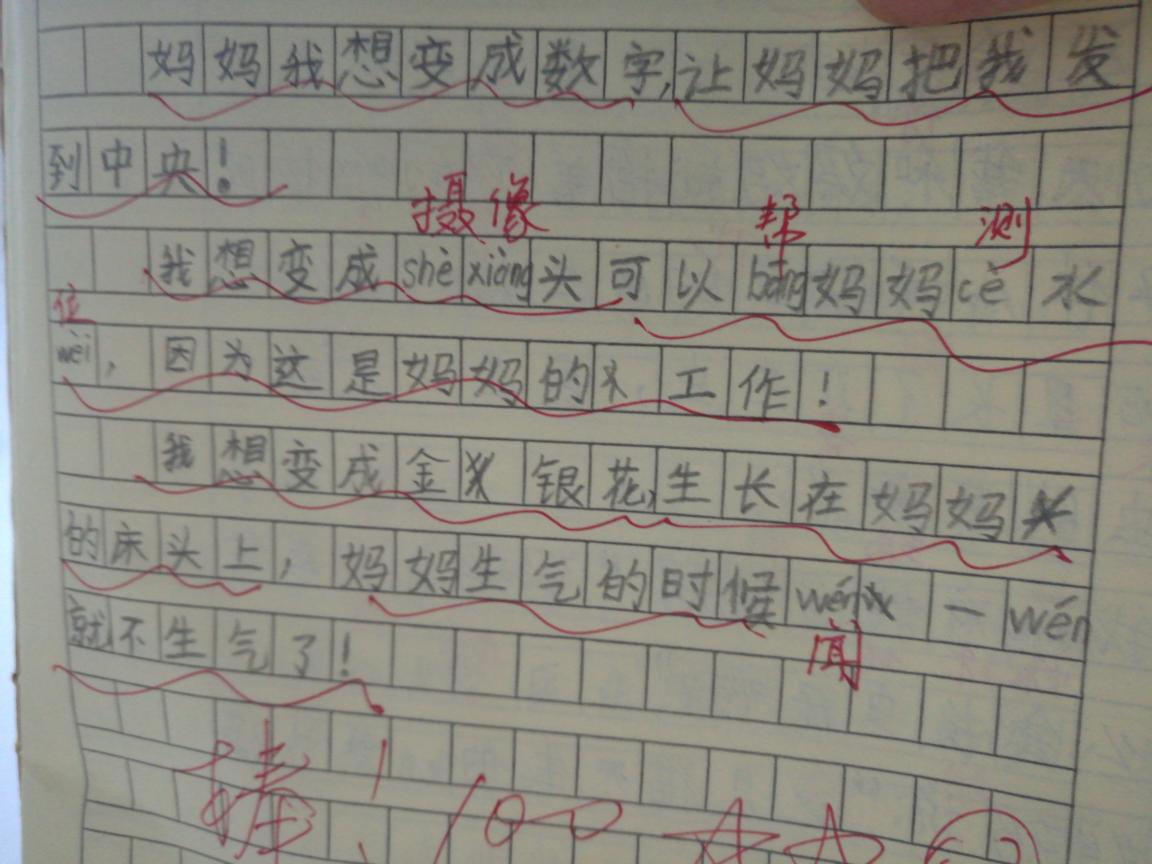 妈妈我想变成数字,让妈妈把我发
到中央!
摄像 帮 测
我想变成shè xiàng头可以bāng妈妈cè水
位
wèi,因为这是妈妈的工作!
我想变成金银花,生长在妈妈
的床头上,妈妈生气的时候wén一wén
闻
就不生气了!
棒!
100 ☆☆